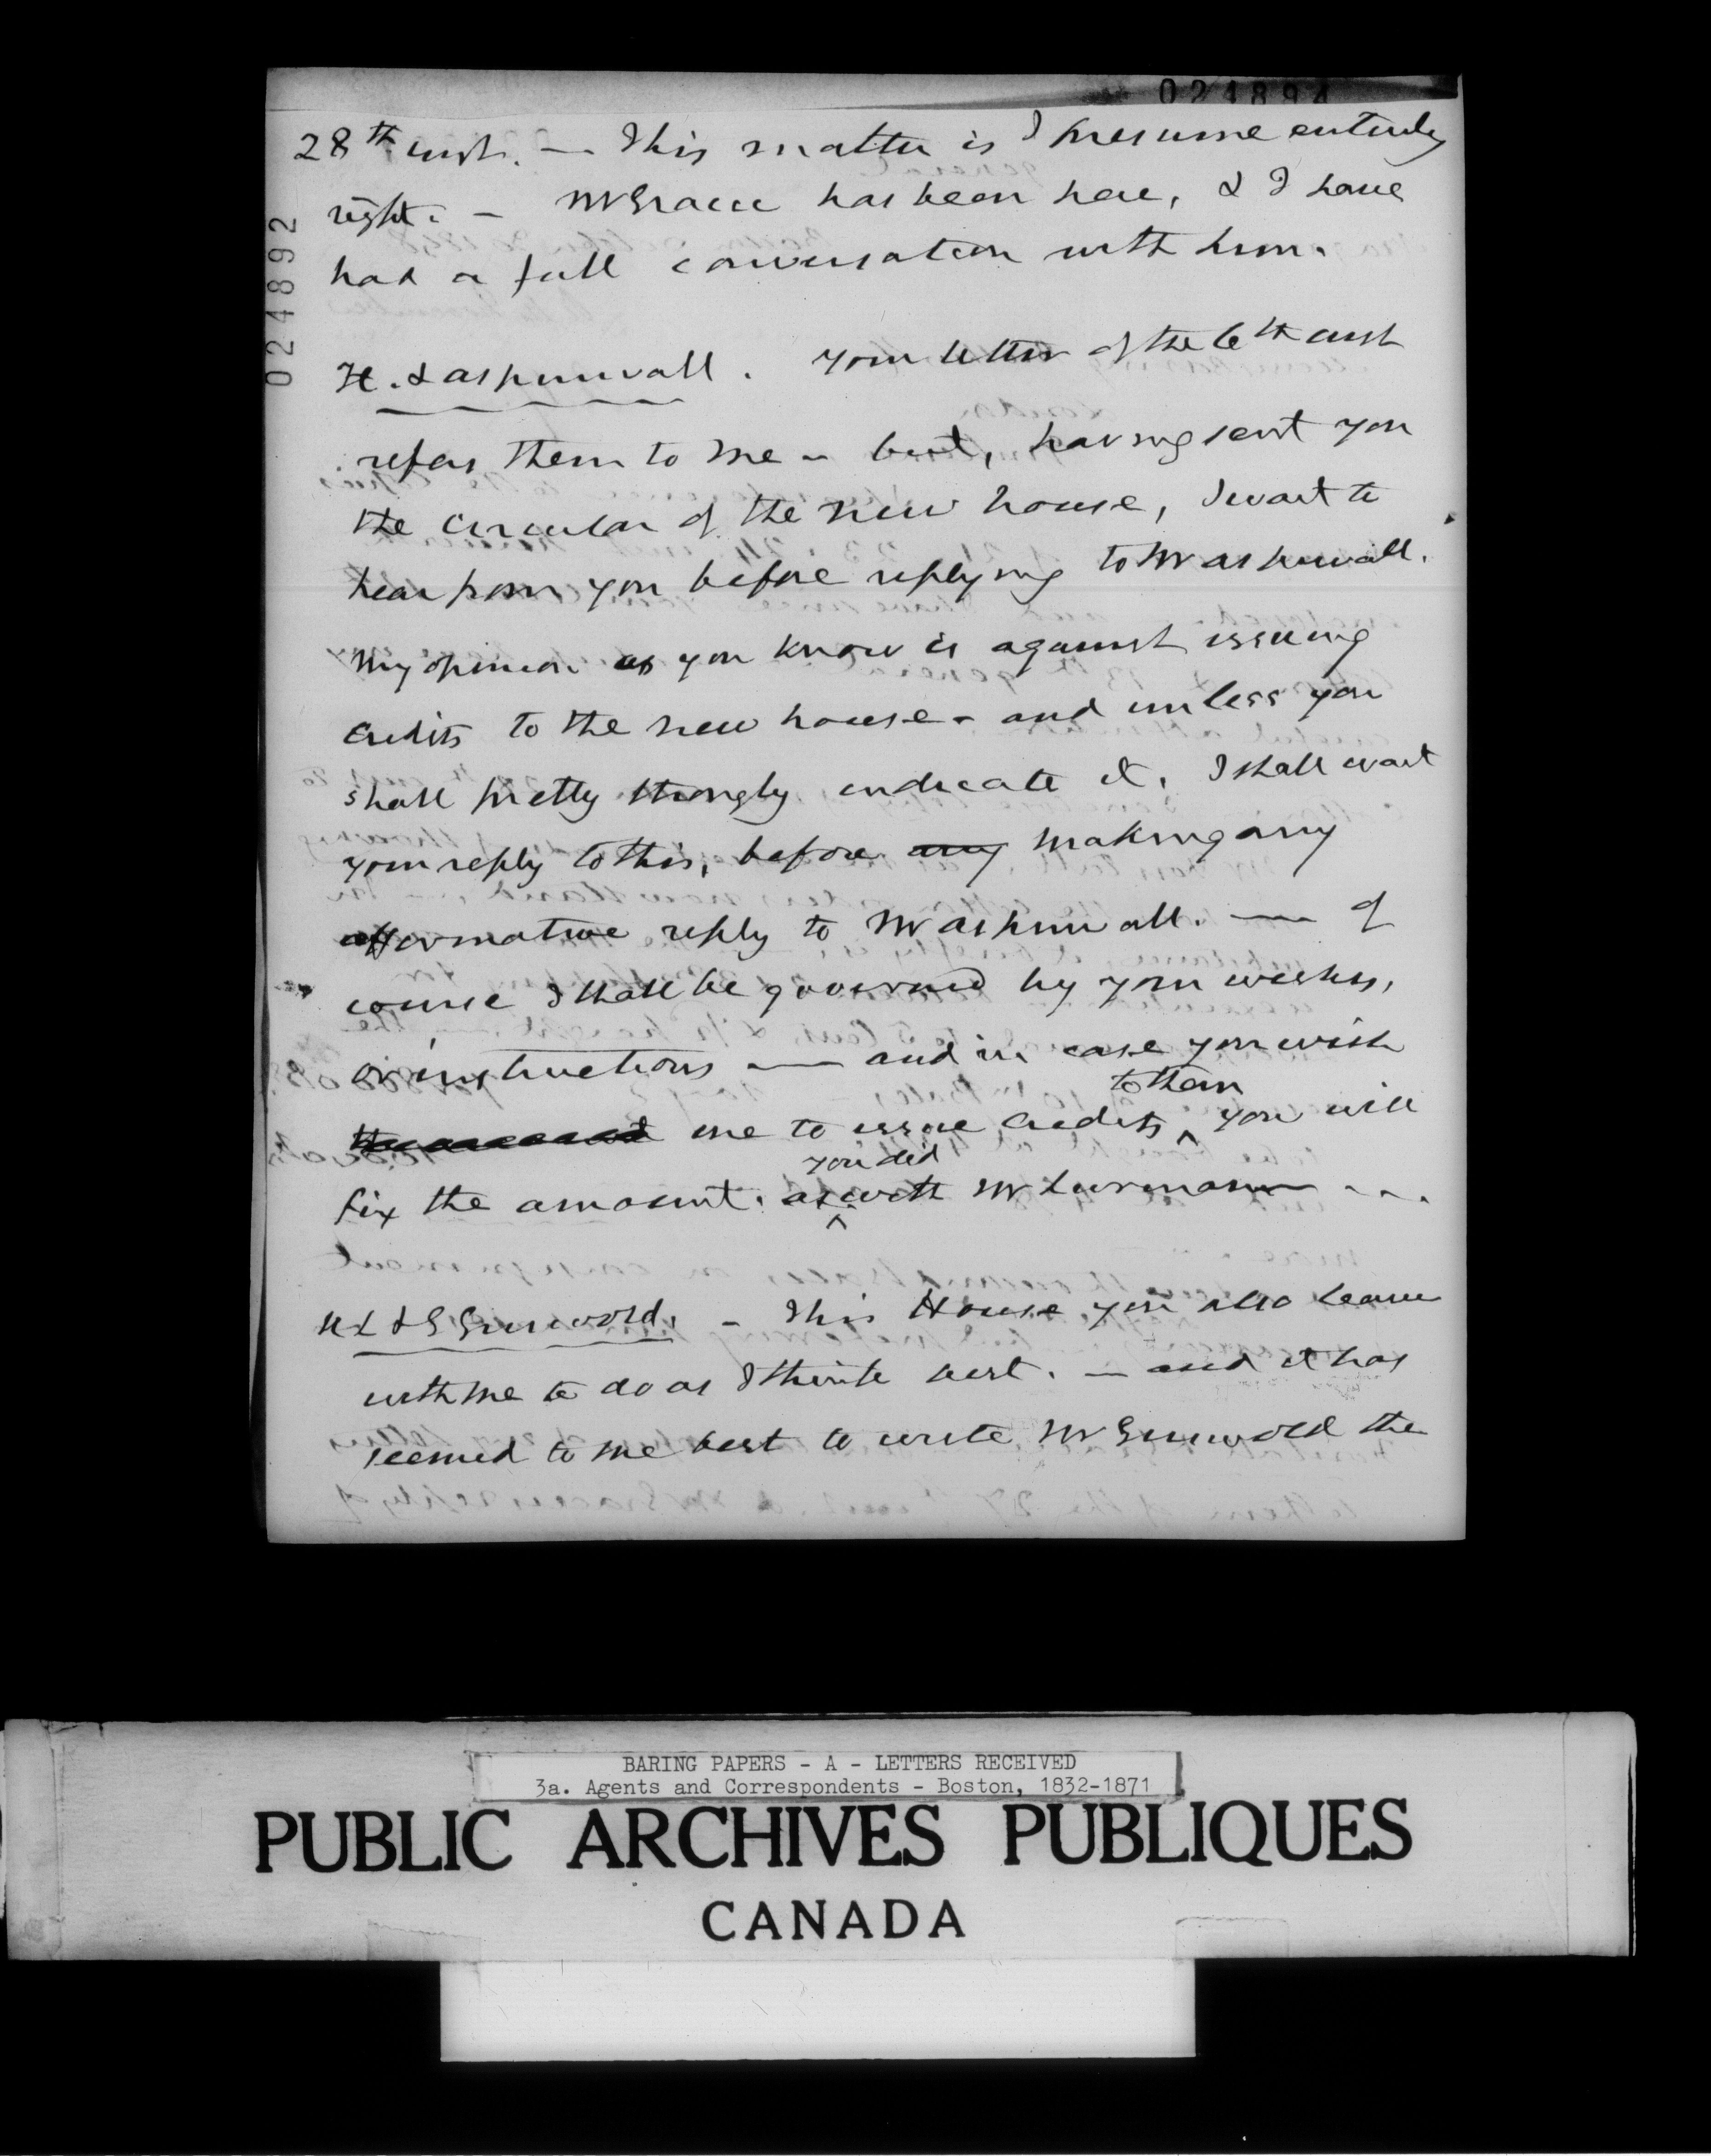 024894
024892
28th inst. — This matter is I presume entirely
right. — Mr Gracie has been here, & I have
had a full conversation with him.
H. & Aspinwall. Your letter of the 6th inst
refers them to me — but, having sent you
the circular of the new house, I wait to
hear from you before replying to Mr Aspinwall.
My opinion as you know is against issuing
credits to the new house — and unless you
shall pretty strongly indicate it, I shall wait
your reply to this, before any making any
affirmative reply to Mr Aspinwall. — of
course I shall be governed by your wishes,
or instructions — and in case you wish
to them
me to issue credits ^ you will
you did
fix the amount. as ^ with Mr Lurman ...
N L & G Griswold. — This House you also leave
with me to do as I think best. — and it has
seemed to me best to write Mr Griswold the
BARING PAPERS - A - LETTERS RECEIVED
3a. Agents and Correspondents - Boston, 1832-1871
PUBLIC ARCHIVES PUBLIQUES
CANADA